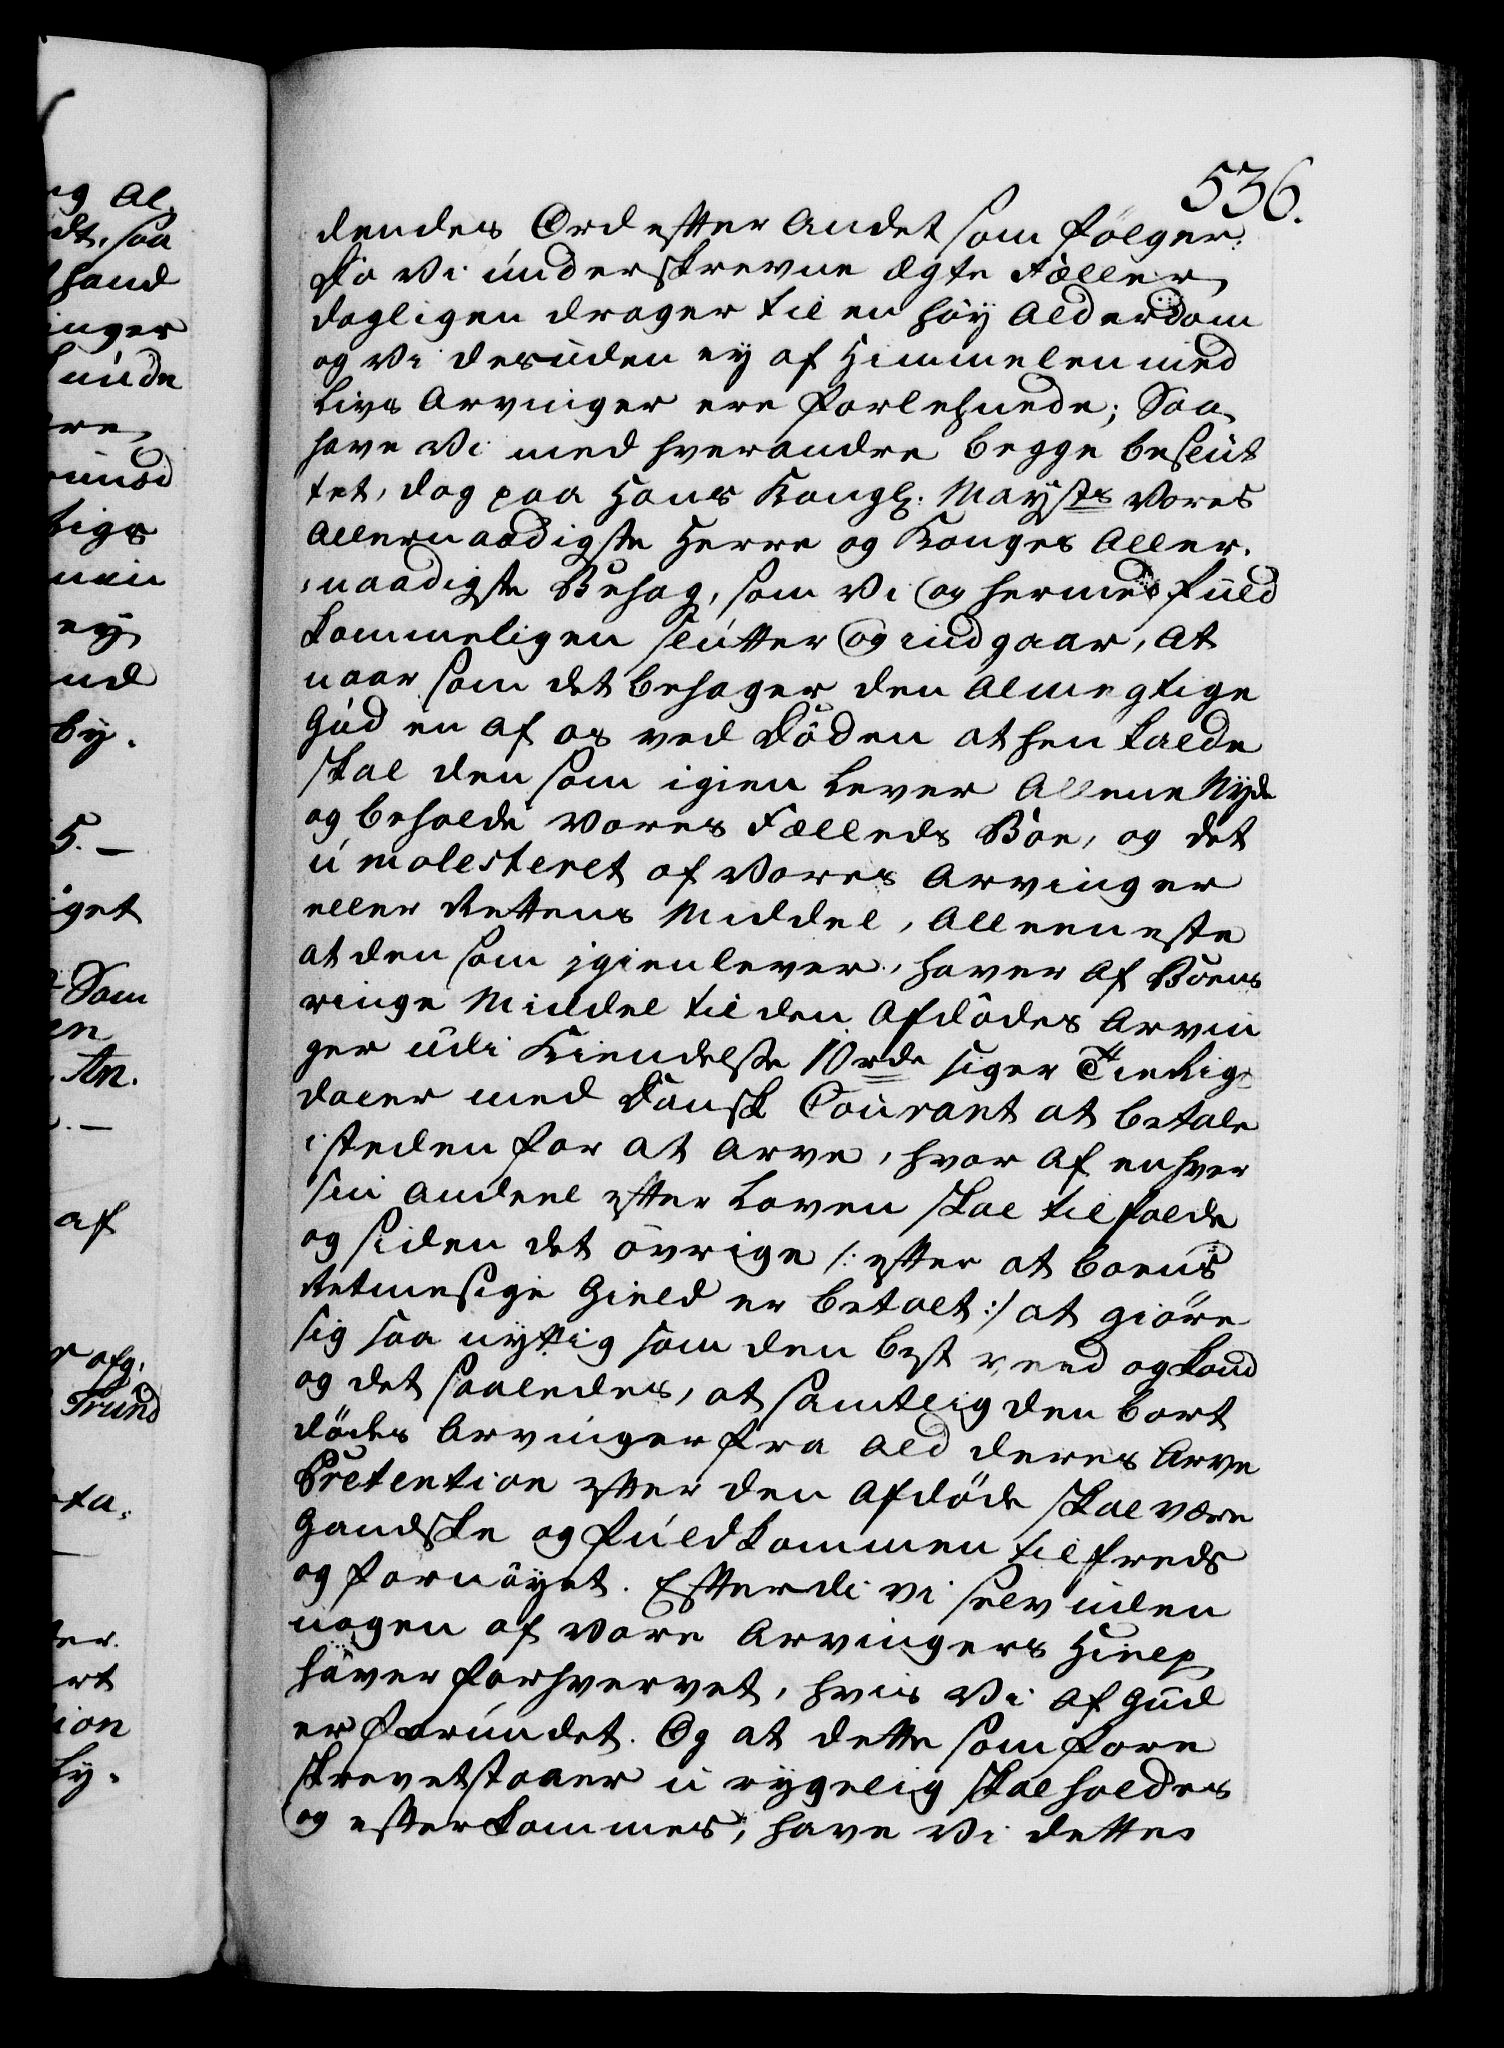 536.
dendes Ord effter Andet som følger:
Da Vi underskrevne Ægte Fæller
dagligen drager til en høy Alderdom
og Vi desuden ey af Himmelen med
Livs Arvinger ere forlehnede; Saa
have Vi med hverandre begge beslut
tet, dog paa Hans Kongl: Maÿsts Vores
Allernaadigste Herre og Konges Aller,
naadigste Behag, som Vi og hermed fuld
kommeligen slutter og indgaar, At
naar som det behager den Almegtige
Gud en af os ved Døden at hen kalde
skal den som igien Lever Allene Nÿde
og beholde Vores Fælleds Boe, og det
u molesteret af Vores Arvinger
eller Rettens Middel, Alleeneste
at den som igienlever, haver Af Boens
ringe Middel til den Afdødes Arvin
ger udi Kiendelsse 10rdr siger Tie Rigs
daler med Dansk Courant at betale
isteden for at Arve, hvor Af enhver
sin Andeel effter Loven skal tilfalde
og siden det øvrige /: effter at boens
Retmesige Gield er betalt :/ at giøre
sig saa nyttig som den best veed og kand
og det saaledes, at samtlig den bort
dødes Arvinger fra Ald deres Arve
Prætention effter den Afdøde skal være
Gandske og fuldkommen tilfreds
og fornøyet. Efterdi vi selv uden
nogen af Vore Arvingers Hielp
haver forhvervet, hvis Vi Af Gud
er forundet. Og at dette som fore
skrevet staaer u rygelig skal holdes
og effterkommes, have Vi dette